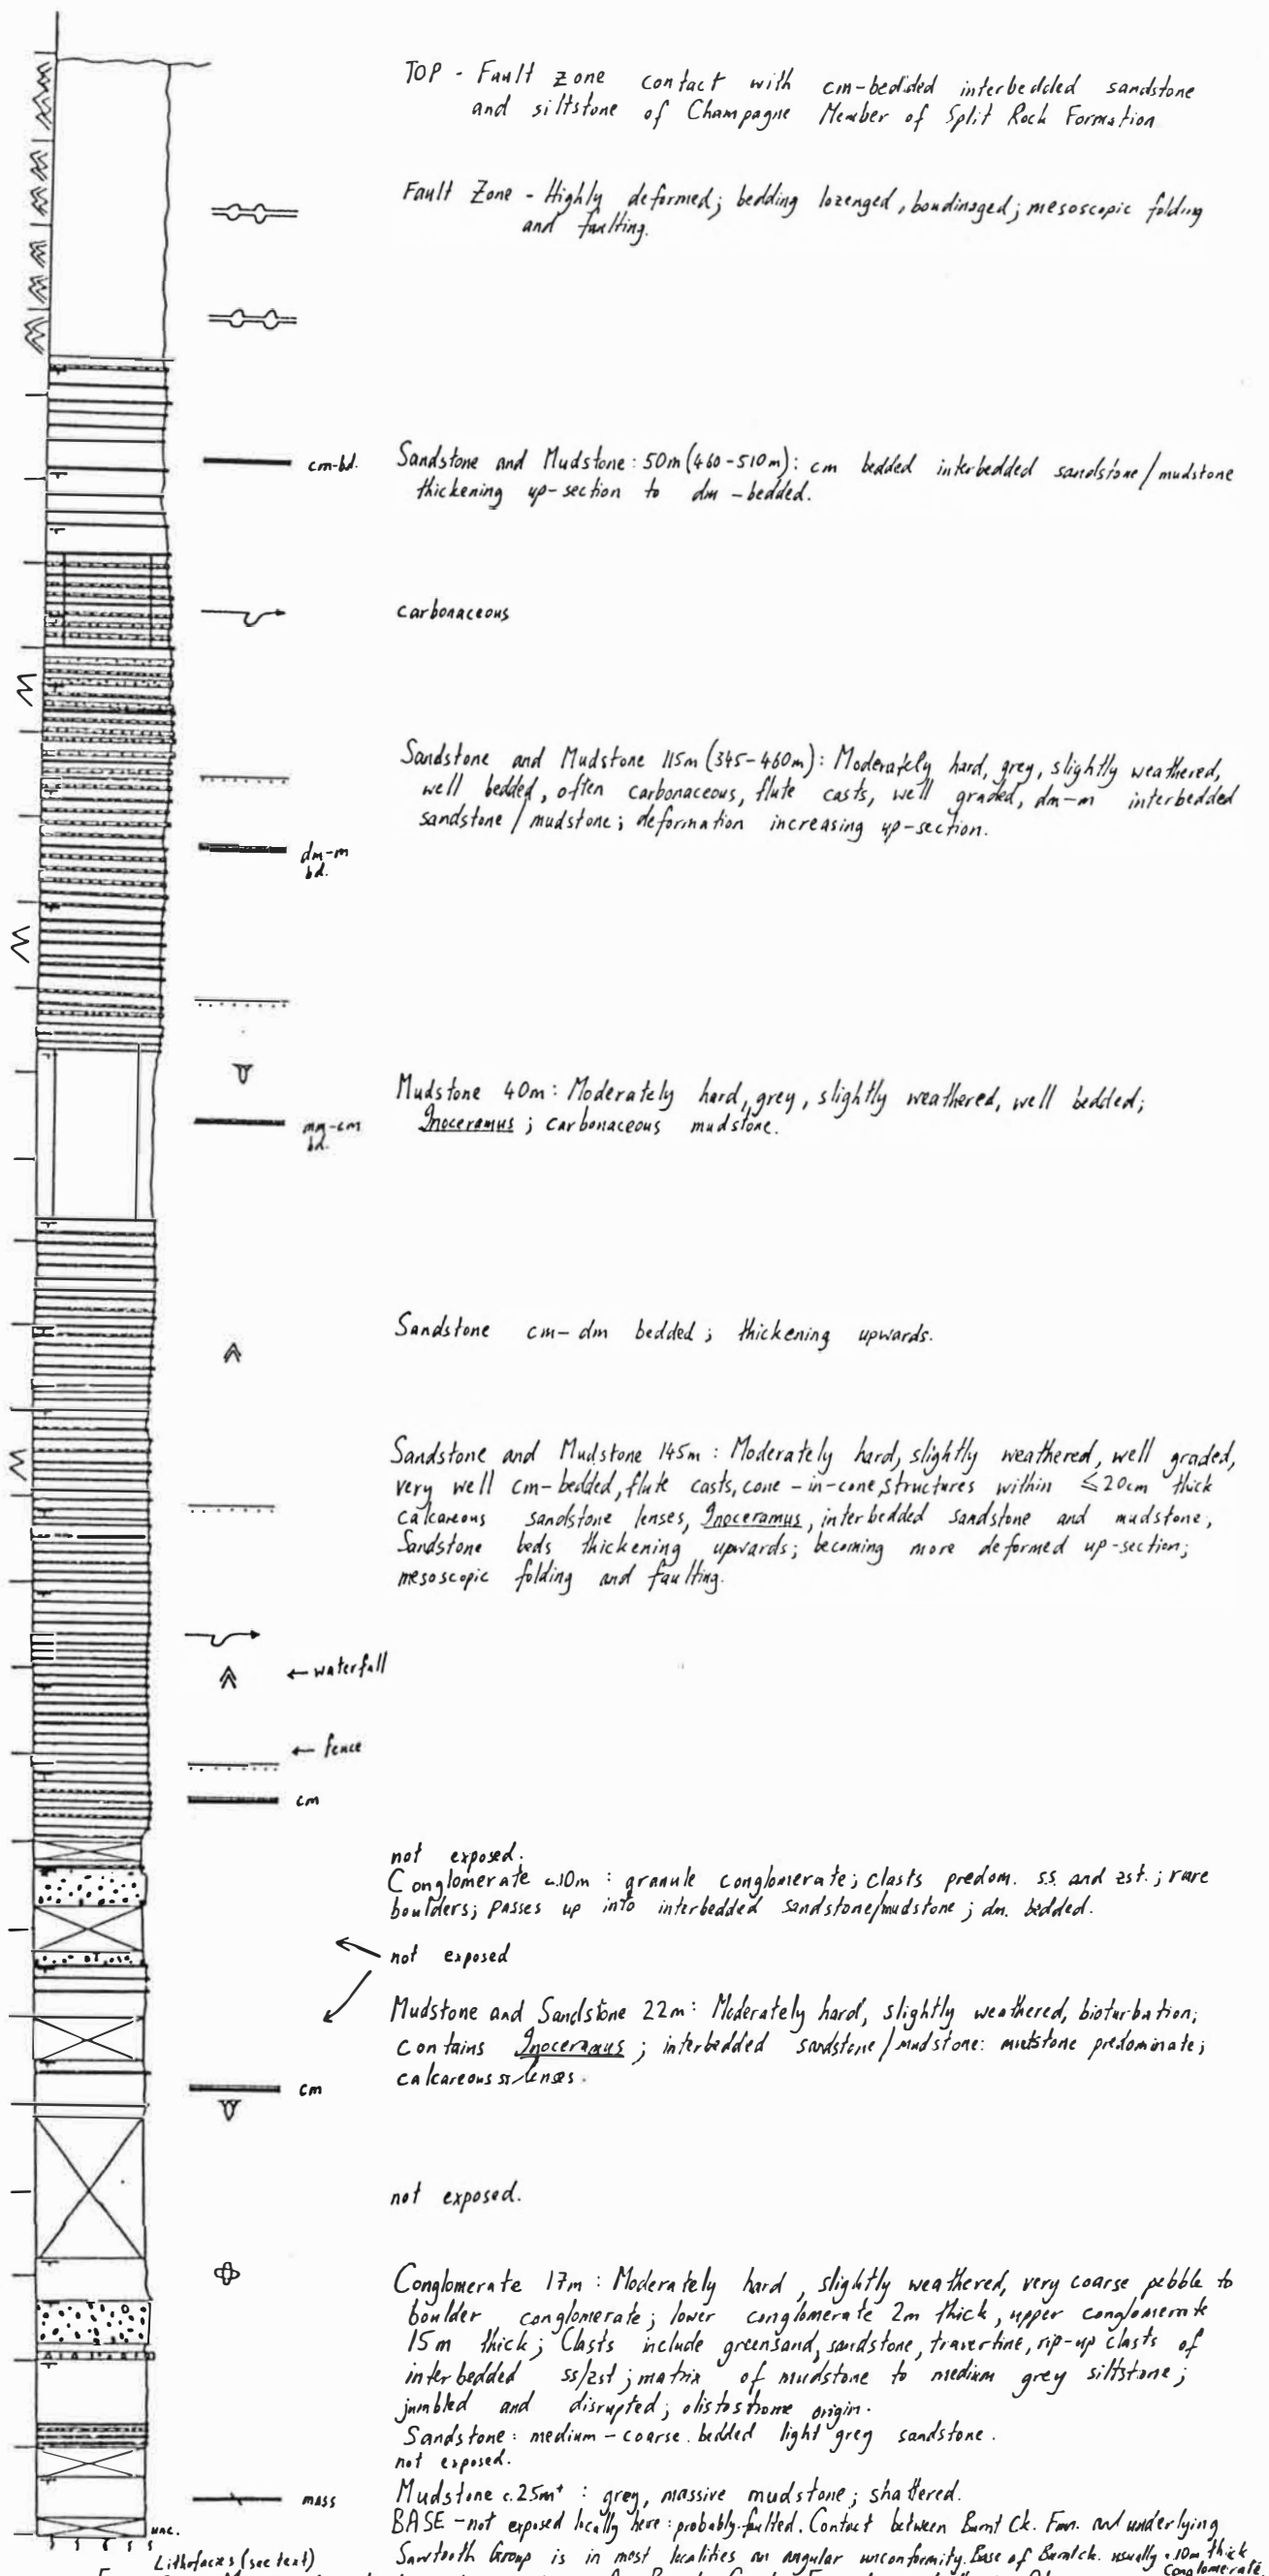 TOP - Fault zone contact with cm-bedded interbedded sandstone
and siltstone of Champagne Member of Split Rock Formation
Fault Zone - Highly deformed; bedding lozenged, boudinaged; mesoscopic folding
and faulting.
cm-bd.
Sandstone and Mudstone: 50m (460-510m): cm bedded interbedded sandstone/mudstone
thickening up-section to dm-bedded.
carbonaceous
Sandstone and Mudstone 115m (345-460m): Moderately hard, grey, slightly weathered,
well bedded, often carbonaceous, flute casts, well graded, dm-m interbedded
sandstone/mudstone; deformation increasing up-section.
dm-m
bd.
Mudstone 40m: Moderately hard, grey, slightly weathered, well bedded;
Inoceramus; carbonaceous mudstone.
mm-cm
bd.
Sandstone cm-dm bedded; thickening upwards.
Sandstone and Mudstone 145m: Moderately hard, slightly weathered, well graded,
very well cm-bedded, flute casts, cone-in-cone structures within ≤20cm thick
calcareous sandstone lenses, Inoceramus, interbedded sandstone and mudstone,
Sandstone beds thickening upwards; becoming more deformed up-section;
mesoscopic folding and faulting.
←waterfall
← fence
cm
not exposed.
Conglomerate c.10m: granule conglomerate; clasts predom. ss. and zst.; rare
boulders; passes up into interbedded sandstone/mudstone; dm. bedded.
not exposed
Mudstone and Sandstone 22m: Moderately hard, slightly weathered, bioturbation;
contains Inoceramus; interbedded sandstone/mudstone: mudstone predominate;
calcareous lenses.
cm
not exposed.
Conglomerate 17m: Moderately hard, slightly weathered, very coarse pebble to
boulder conglomerate; lower conglomerate 2m thick, upper conglomerate
15m thick; Clasts include greensand, sandstone, travertine, rip-up clasts of
interbedded ss/zst; matrix of mudstone to medium grey siltstone;
jumbled and disrupted; olistostrome origin.
Sandstone: medium-coarse. bedded light grey sandstone.
not exposed.
mass
Mudstone c.25m⁺: grey, massive mudstone; shattered.
BASE - not exposed locally here: probably faulted. Contact between Burnt Ck. Fmn. and underlying
unc.
Sawtooth Group is in most localities an angular unconformity. Base of Burnt Ck. usually c.10m thick
conglomerate
Lithofacies (see text)